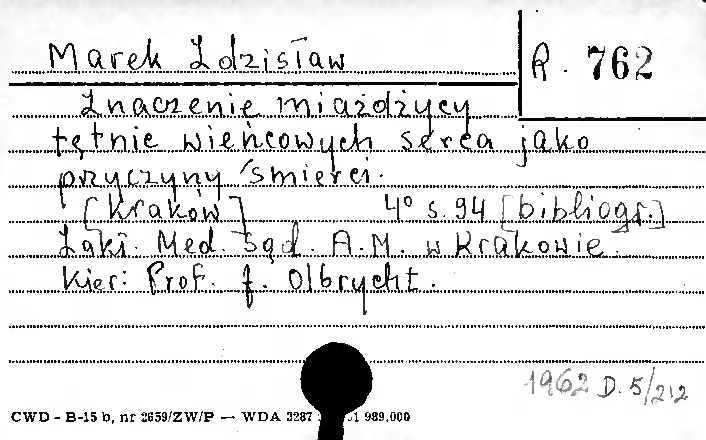 Marek Zdzisław
R. 762
Znaczenie miażdżycy
tętnic wieńcowych serca jako
przyczyny śmierci.
[Kraków] 4° s. 94 [bibliogr.]
Zakł. Med. Sąd. A.M. w Krakowie.
Kier: Prof. J. Olbrycht.
1962 D. 5/212
CWD - B-15 b, nr 2659/ZW/P — WDA 3287 51 989.000